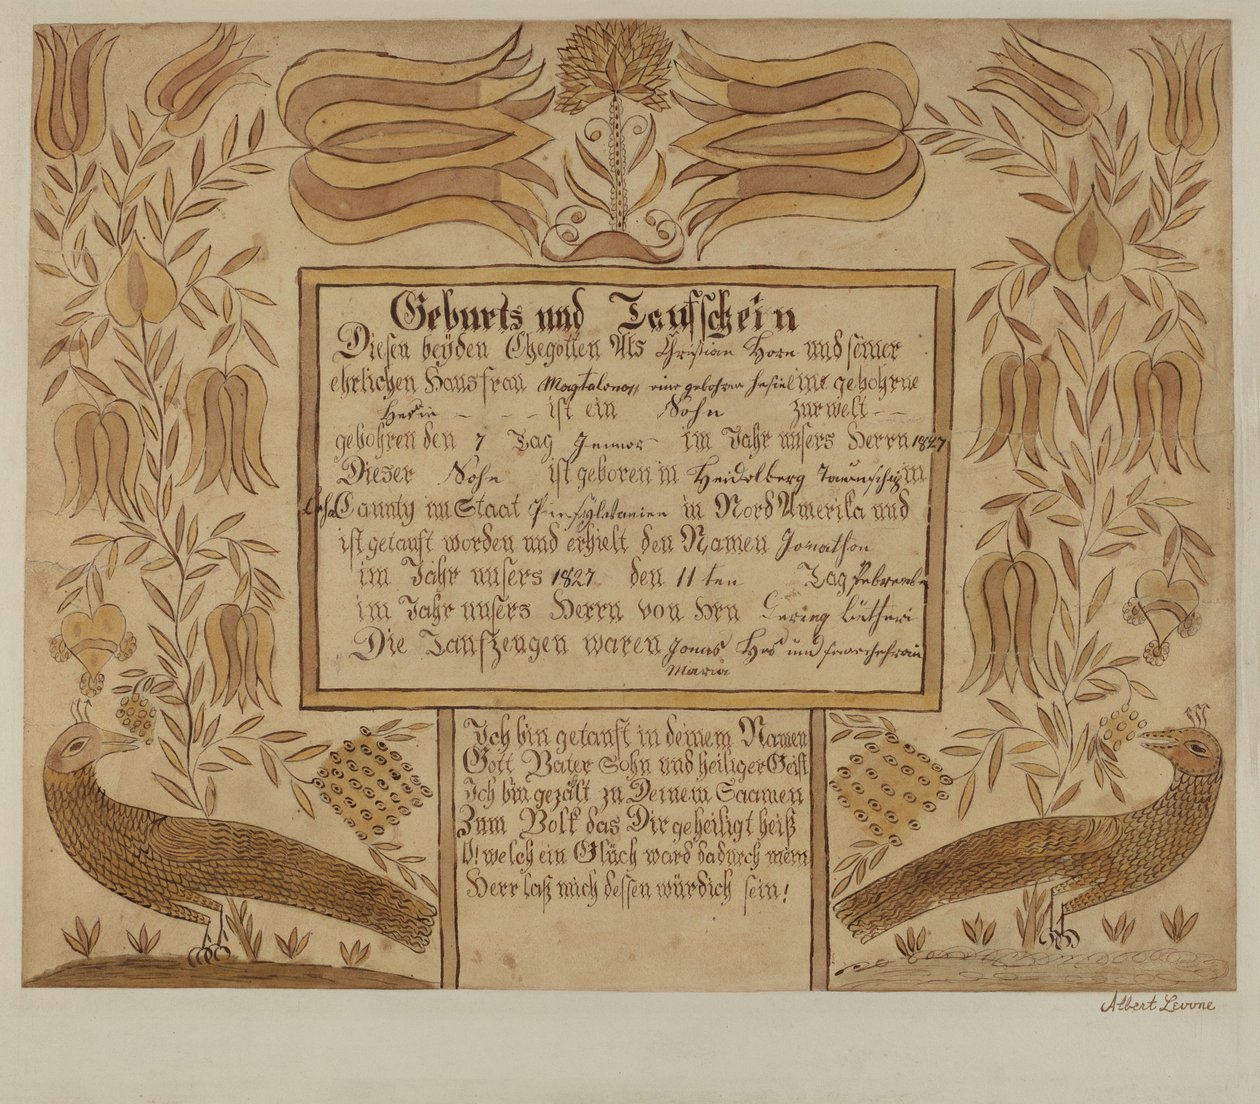 Geburts und Taufschein
Diesen beyden Ehegatten Als Christian Horn und seiner
ehrlichen Hausfrau Magtalena eine gebohrne
ist ein Sohn zur welt
gebohren den 7 Tag Jenner im Jahr unsers Herrn 1827
Dieser Sohn ist geboren in Heidelberg Taunschip in
Lecha Caunty im Staat Pensylvanien in Nord Amerika und
ist getauft worden und erhielt den Namen Jonathan
im Jahr unsers 1827 den 11 ten Tag Februar
im Jahr unsers Herrn von Hrn
Die Taufzeugen waren Jonas Has und
Maria
Ich bin getauft in deinem Namen
Gott Vater Sohn und heiliger Geist
Ich bin gezält zu Deinem Saamen
Zum Volk das Dir geheiligt heiß
O! welch ein Glück ward dadurch mein
Herr laß mich dessen würdich sein!
Albert Levone